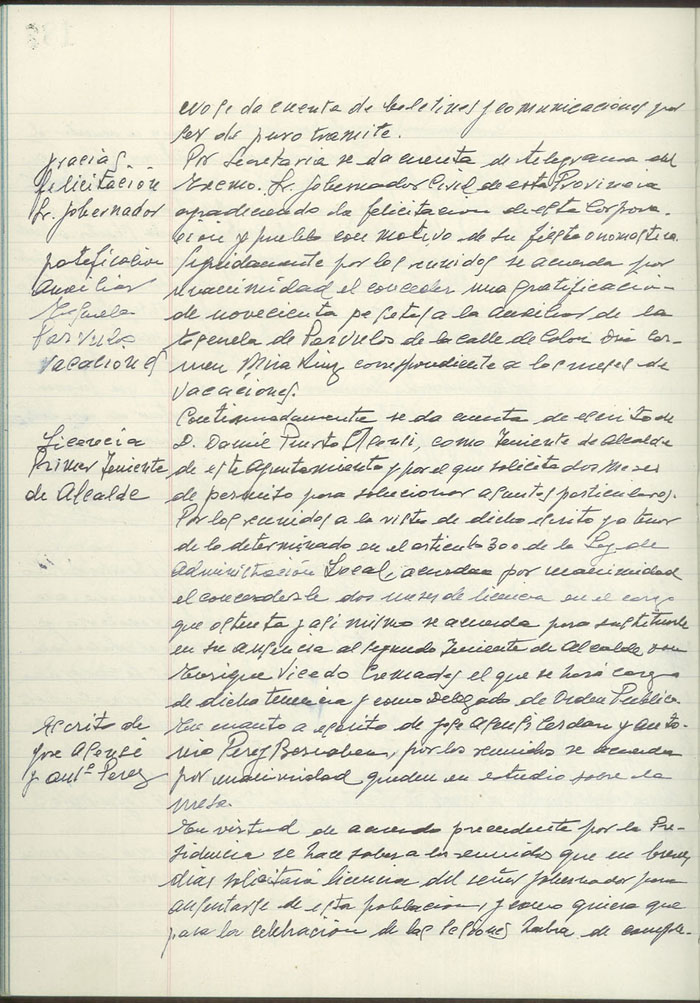 no se da cuenta de boletines y comunicaciones por
ser de puro tramite.
gracias
felicitación
Sr. Gobernador
Por Secretaria se da cuenta de telegrama del
Excmo. Sr. Gobernador Civil de esta Provincia
agradeciendo la felicitacion de esta Corpora-
cion y pueblo con motivo de su fiesta onomastica.
gratificacion
Auxiliar
Escuela
Parvulos
vacaciones
Seguidamente por los reunidos se acuerda por
unanimidad el conceder una gratificacion
de novecienta pesetas a la auxiliar de la
Escuela de Parvulos de la calle de Colon Dña Car-
men Mira Ruiz correspondiente a los meses de
vacaciones.
Licencia
Primer Teniente
de Alcalde
Continuadamente se da cuenta de escrito de
D. Daniel Puerto, como Teniente de Alcalde
de este Ayuntamiento y por el que solicita dos meses
de permiso para solucionar asuntos particulares.
Por los reunidos a la vista de dicho escrito y a tenor
de lo determinado en el articulo 300 de la Ley de
Administración Local, acuerdan por unanimidad
el concederle dos meses de licencia en el cargo
que ostenta y asi mismo se acuerda para sustituirle
en su ausencia al segundo Teniente de Alcalde don
Enrique Vicedo Cremades el que se hará cargo
de dicha tenencia y como Delegado de Orden Publico.
Escrito de
Jose Alonsi
y Antº Perez
En cuanto a escrito de Jose Cerdan y Anto-
nio Perez, por los reunidos se acuerda
por unanimidad queden en estudio sobre la
mesa.
En virtud de acuerdo precedente por la Pre-
sidencia se hace saber a los reunidos que en breves
dias solicitará licencia del señor Gobernador para
ausentarse de esta poblacion, y como quiera que
para la celebración de las sesiones habra de comple-